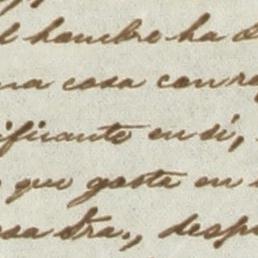 l hombre ha d
na cosa con re
ificante en sí,
que gasta en
sa Sra., despu